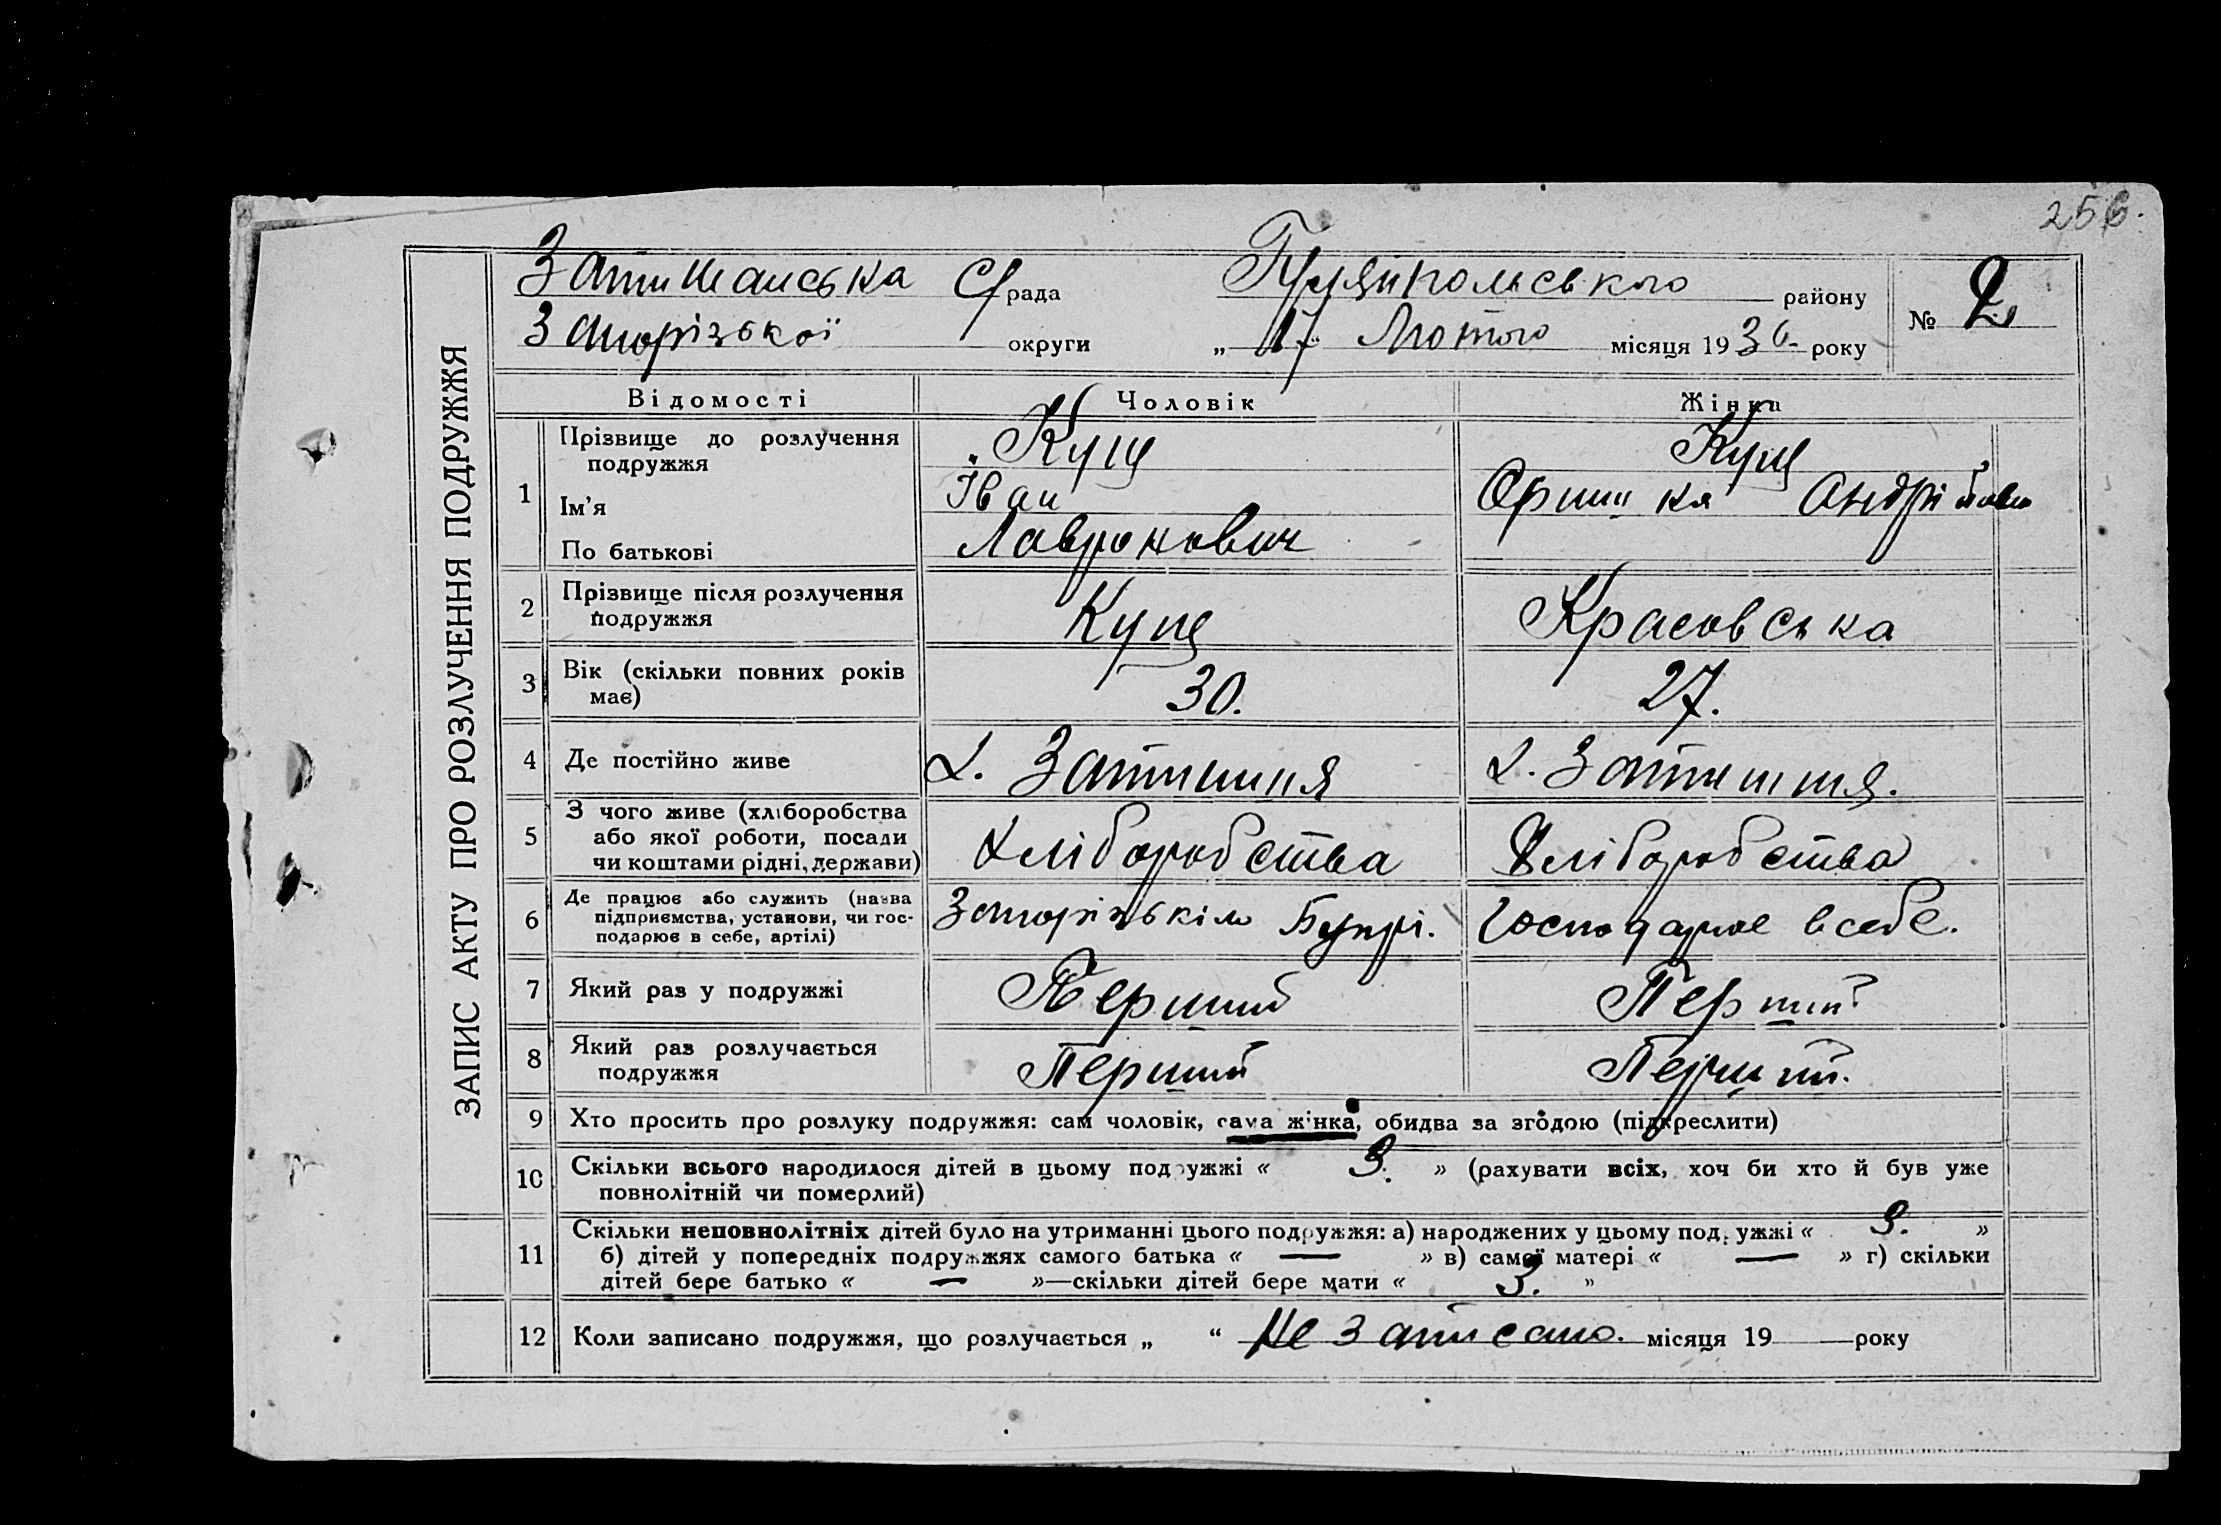 256.
ЗАПИС АКТУ ПРО РОЗЛУЧЕННЯ ПОДРУЖЖЯ
Затишанська С/рада Гуляйпольського району № 2
Запорізької округи „ 17 “ Лютого місяця 1930 року
Відомості Чоловік Жінка
1 Прізвище до розлучення подружжя Кущ Кущ
Ім'я Іван Оришка Андріївна
По батькові Лавронович
2 Прізвище після розлучення подружжя Кущ Красовська
3 Вік (скільки повних років має) 30. 27.
4 Де постійно живе х. Затишшя х. Затишшя.
5 З чого живе (хліборобства або якої роботи, посади чи коштами рідні, держави) Хліборобства Хліборобства
6 Де працює або служить (назва підприємства, установи, чи господарює в себе, артілі) Запорізькім Бупрі. Господарює в себе.
7 Який раз у подружжі Перший Перший
8 Який раз розлучається подружжя Перший Перший.
9 Хто просить про розлуку подружжя: сам чоловік, сама жінка, обидва за згодою (підкреслити)
10 Скільки всього народилося дітей в цьому подружжі « 3. » (рахувати всіх, хоч би хто й був уже
повнолітній чи померлий)
11 Скільки неповнолітніх дітей було на утриманні цього подружжя: а) народжених у цьому подружжі « 3. »
б) дітей у попередніх подружжях самого батька « — » в) самої матері « — » г) скільки
дітей бере батько « — »—скільки дітей бере мати « 3. »
12 Коли записано подружжя, що розлучається „ “ Не записано. місяця 19 року